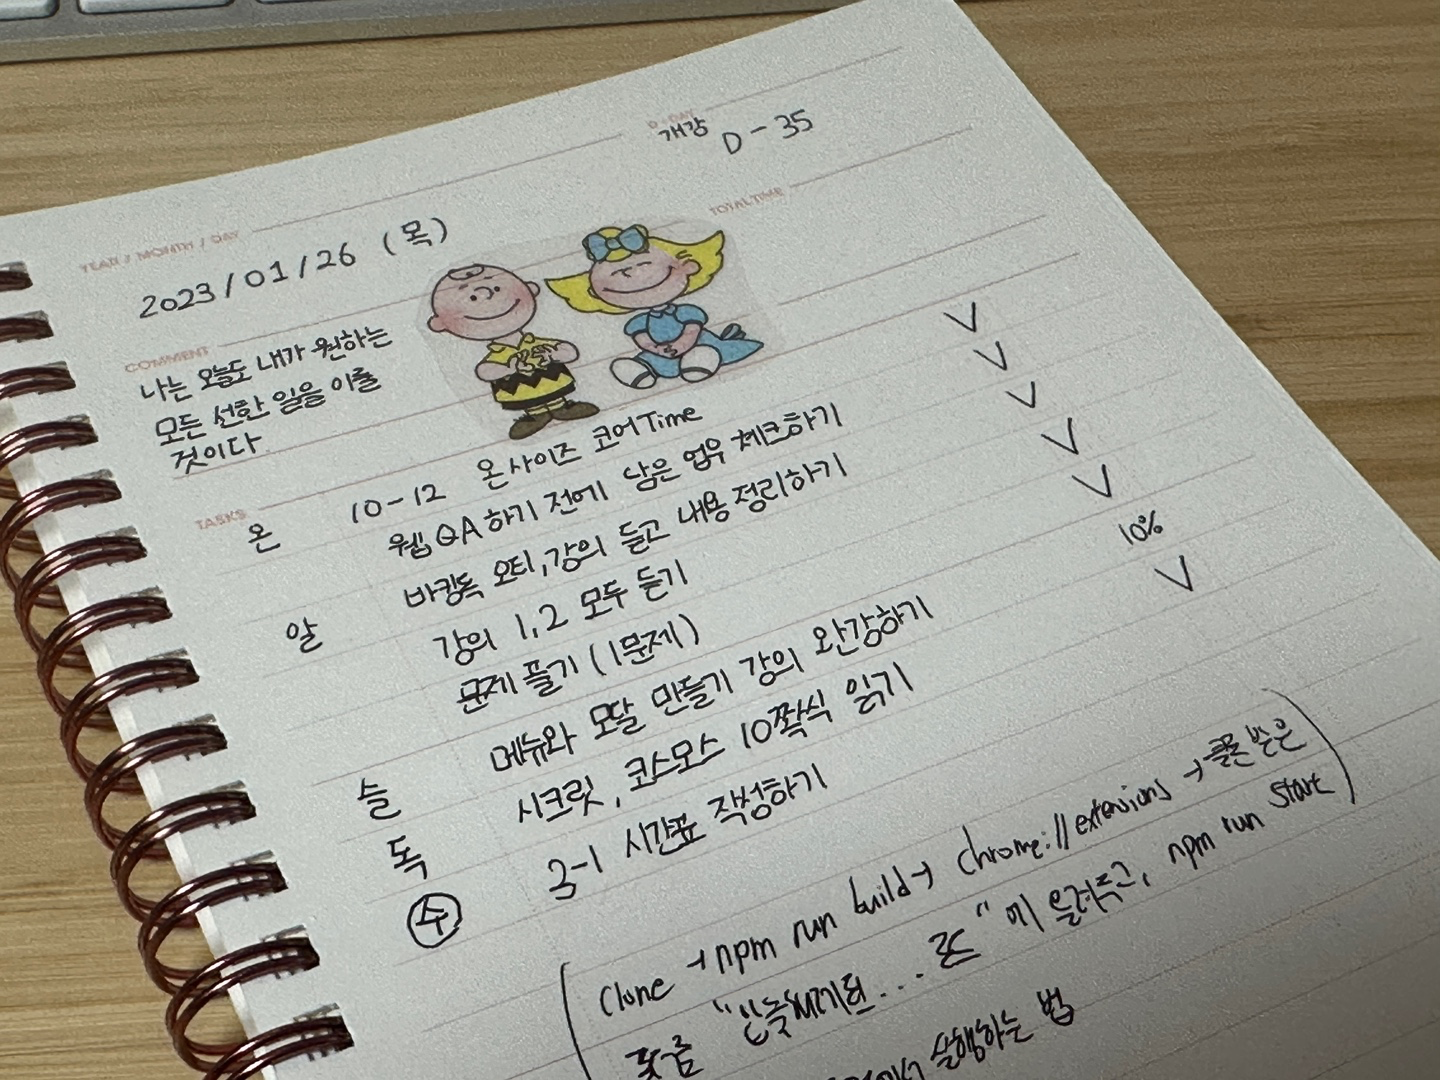 D-DAY
개강 D - 35
YEAR / MONTH / DAY
2023/01/26 (목)
TOTAL TIME
COMMENT
나는 오늘도 내가 원하는
모든 선한 일을 이룰
것이다.
TASKS
온 10-12 온사이즈 코어Time
웹 QA 하기 전에 남은 업무 체크하기 V
알 바킹독 오티, 강의 듣고 내용 정리하기 V
강의 1, 2 모두 듣기 V
문제 풀기 (1문제) V
슬 메뉴와 모달 만들기 강의 완강하기 V
독 시크릿, 코스모스 10쪽씩 읽기 10%
수 3-1 시간표 작성하기 V
(clone → npm run build → chrome://extensions → 클론 받은
폴더 " 에 올려두고, npm run start)
실행하는 법